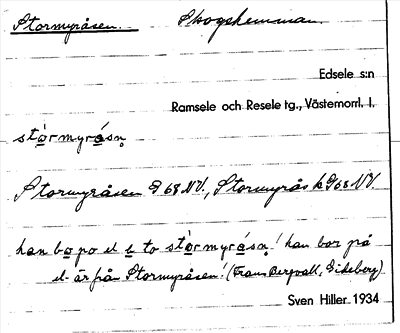 Stormyråsen. Skogshemman.
Edsele s:n
Ramsele och Resele tg., Västernorrl. l.
stòrmyrásn̥
Stormyråsen G 68 NV., Stormyrås k G 68 NV.
han bo po el to stòrmyrásn̥! han bor på
el. är från Stormyråsen! (Frans Bergvall, Eideberg)
Sven Hiller 1934